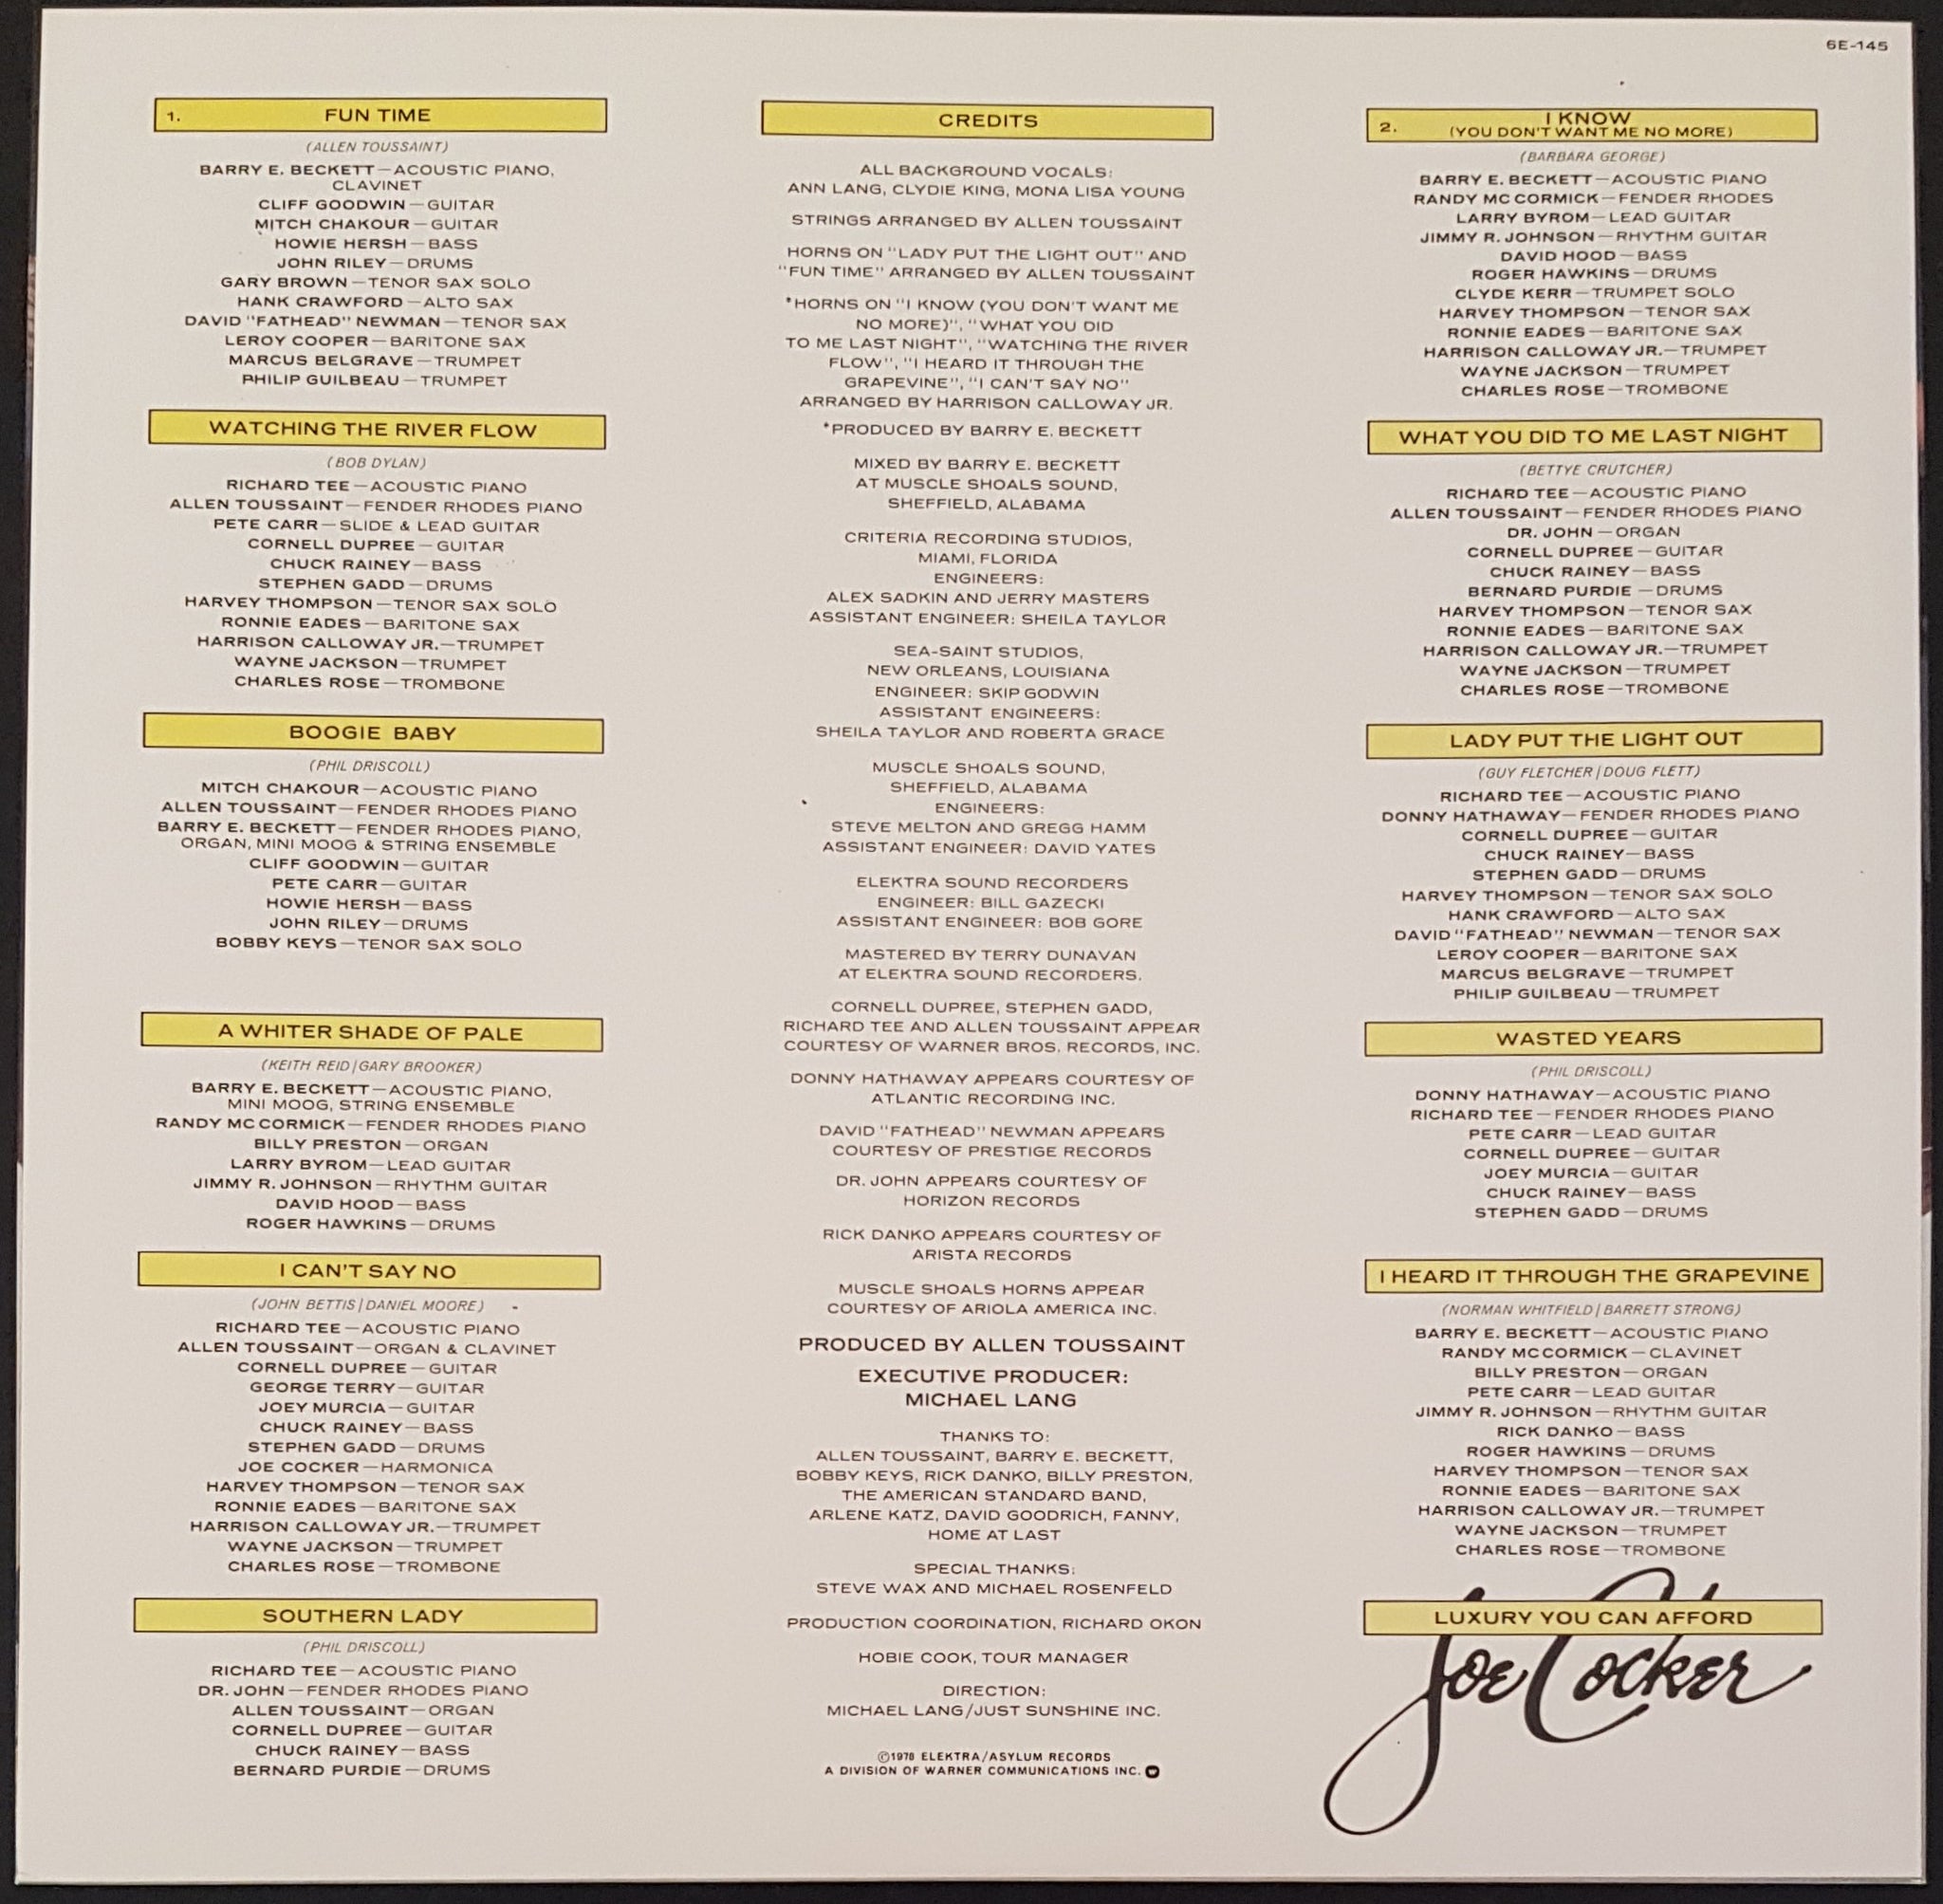 6E-145
1. FUN TIME
(ALLEN TOUSSAINT)
BARRY E. BECKETT—ACOUSTIC PIANO,
CLAVINET
CLIFF GOODWIN—GUITAR
MITCH CHAKOUR—GUITAR
HOWIE HERSH—BASS
JOHN RILEY—DRUMS
GARY BROWN—TENOR SAX SOLO
HANK CRAWFORD—ALTO SAX
DAVID "FATHEAD" NEWMAN—TENOR SAX
LEROY COOPER—BARITONE SAX
MARCUS BELGRAVE—TRUMPET
PHILIP GUILBEAU—TRUMPET
WATCHING THE RIVER FLOW
(BOB DYLAN)
RICHARD TEE—ACOUSTIC PIANO
ALLEN TOUSSAINT—FENDER RHODES PIANO
PETE CARR—SLIDE & LEAD GUITAR
CORNELL DUPREE—GUITAR
CHUCK RAINEY—BASS
STEPHEN GADD—DRUMS
HARVEY THOMPSON—TENOR SAX SOLO
RONNIE EADES—BARITONE SAX
HARRISON CALLOWAY JR.—TRUMPET
WAYNE JACKSON—TRUMPET
CHARLES ROSE—TROMBONE
BOOGIE BABY
(PHIL DRISCOLL)
MITCH CHAKOUR—ACOUSTIC PIANO
ALLEN TOUSSAINT—FENDER RHODES PIANO
BARRY E. BECKETT—FENDER RHODES PIANO,
ORGAN, MINI MOOG & STRING ENSEMBLE
CLIFF GOODWIN—GUITAR
PETE CARR—GUITAR
HOWIE HERSH—BASS
JOHN RILEY—DRUMS
BOBBY KEYS—TENOR SAX SOLO
A WHITER SHADE OF PALE
(KEITH REID/GARY BROOKER)
BARRY E. BECKETT—ACOUSTIC PIANO,
MINI MOOG, STRING ENSEMBLE
RANDY MC CORMICK—FENDER RHODES PIANO
BILLY PRESTON—ORGAN
LARRY BYROM—LEAD GUITAR
JIMMY R. JOHNSON—RHYTHM GUITAR
DAVID HOOD—BASS
ROGER HAWKINS—DRUMS
I CAN'T SAY NO
(JOHN BETTIS/DANIEL MOORE)
RICHARD TEE—ACOUSTIC PIANO
ALLEN TOUSSAINT—ORGAN & CLAVINET
CORNELL DUPREE—GUITAR
GEORGE TERRY—GUITAR
JOEY MURCIA—GUITAR
CHUCK RAINEY—BASS
STEPHEN GADD—DRUMS
JOE COCKER—HARMONICA
HARVEY THOMPSON—TENOR SAX
RONNIE EADES—BARITONE SAX
HARRISON CALLOWAY JR.—TRUMPET
WAYNE JACKSON—TRUMPET
CHARLES ROSE—TROMBONE
SOUTHERN LADY
(PHIL DRISCOLL)
RICHARD TEE—ACOUSTIC PIANO
DR. JOHN—FENDER RHODES PIANO
ALLEN TOUSSAINT—ORGAN
CORNELL DUPREE—GUITAR
CHUCK RAINEY—BASS
BERNARD PURDIE—DRUMS
CREDITS
ALL BACKGROUND VOCALS:
ANN LANG, CLYDIE KING, MONA LISA YOUNG
STRINGS ARRANGED BY ALLEN TOUSSAINT
HORNS ON "LADY PUT THE LIGHT OUT" AND
"FUN TIME" ARRANGED BY ALLEN TOUSSAINT
*HORNS ON "I KNOW (YOU DON'T WANT ME
NO MORE)", "WHAT YOU DID
TO ME LAST NIGHT", "WATCHING THE RIVER
FLOW", "I HEARD IT THROUGH THE
GRAPEVINE", "I CAN'T SAY NO"
ARRANGED BY HARRISON CALLOWAY JR.
*PRODUCED BY BARRY E. BECKETT
MIXED BY BARRY E. BECKETT
AT MUSCLE SHOALS SOUND,
SHEFFIELD, ALABAMA
CRITERIA RECORDING STUDIOS,
MIAMI, FLORIDA
ENGINEERS:
ALEX SADKIN AND JERRY MASTERS
ASSISTANT ENGINEER: SHEILA TAYLOR
SEA-SAINT STUDIOS,
NEW ORLEANS, LOUISIANA
ENGINEER: SKIP GODWIN
ASSISTANT ENGINEERS:
SHEILA TAYLOR AND ROBERTA GRACE
MUSCLE SHOALS SOUND,
SHEFFIELD, ALABAMA
ENGINEERS:
STEVE MELTON AND GREGG HAMM
ASSISTANT ENGINEER: DAVID YATES
ELEKTRA SOUND RECORDERS
ENGINEER: BILL GAZECKI
ASSISTANT ENGINEER: BOB GORE
MASTERED BY TERRY DUNAVAN
AT ELEKTRA SOUND RECORDERS.
CORNELL DUPREE, STEPHEN GADD,
RICHARD TEE AND ALLEN TOUSSAINT APPEAR
COURTESY OF WARNER BROS. RECORDS, INC.
DONNY HATHAWAY APPEARS COURTESY OF
ATLANTIC RECORDING INC.
DAVID "FATHEAD" NEWMAN APPEARS
COURTESY OF PRESTIGE RECORDS
DR. JOHN APPEARS COURTESY OF
HORIZON RECORDS
RICK DANKO APPEARS COURTESY OF
ARISTA RECORDS
MUSCLE SHOALS HORNS APPEAR
COURTESY OF ARIOLA AMERICA INC.
PRODUCED BY ALLEN TOUSSAINT
EXECUTIVE PRODUCER:
MICHAEL LANG
THANKS TO:
ALLEN TOUSSAINT, BARRY E. BECKETT,
BOBBY KEYS, RICK DANKO, BILLY PRESTON,
THE AMERICAN STANDARD BAND,
ARLENE KATZ, DAVID GOODRICH, FANNY,
HOME AT LAST
SPECIAL THANKS:
STEVE WAX AND MICHAEL ROSENFELD
PRODUCTION COORDINATION, RICHARD OKON
HOBIE COOK, TOUR MANAGER
DIRECTION:
MICHAEL LANG/JUST SUNSHINE INC.
©1978 ELEKTRA/ASYLUM RECORDS
A DIVISION OF WARNER COMMUNICATIONS INC.
2. I KNOW
(YOU DON'T WANT ME NO MORE)
(BARBARA GEORGE)
BARRY E. BECKETT—ACOUSTIC PIANO
RANDY MC CORMICK—FENDER RHODES
LARRY BYROM—LEAD GUITAR
JIMMY R. JOHNSON—RHYTHM GUITAR
DAVID HOOD—BASS
ROGER HAWKINS—DRUMS
CLYDE KERR—TRUMPET SOLO
HARVEY THOMPSON—TENOR SAX
RONNIE EADES—BARITONE SAX
HARRISON CALLOWAY JR.—TRUMPET
WAYNE JACKSON—TRUMPET
CHARLES ROSE—TROMBONE
WHAT YOU DID TO ME LAST NIGHT
(BETTYE CRUTCHER)
RICHARD TEE—ACOUSTIC PIANO
ALLEN TOUSSAINT—FENDER RHODES PIANO
DR. JOHN—ORGAN
CORNELL DUPREE—GUITAR
CHUCK RAINEY—BASS
BERNARD PURDIE—DRUMS
HARVEY THOMPSON—TENOR SAX
RONNIE EADES—BARITONE SAX
HARRISON CALLOWAY JR.—TRUMPET
WAYNE JACKSON—TRUMPET
CHARLES ROSE—TROMBONE
LADY PUT THE LIGHT OUT
(GUY FLETCHER/DOUG FLETT)
RICHARD TEE—ACOUSTIC PIANO
DONNY HATHAWAY—FENDER RHODES PIANO
CORNELL DUPREE—GUITAR
CHUCK RAINEY—BASS
STEPHEN GADD—DRUMS
HARVEY THOMPSON—TENOR SAX SOLO
HANK CRAWFORD—ALTO SAX
DAVID "FATHEAD" NEWMAN—TENOR SAX
LEROY COOPER—BARITONE SAX
MARCUS BELGRAVE—TRUMPET
PHILIP GUILBEAU—TRUMPET
WASTED YEARS
(PHIL DRISCOLL)
DONNY HATHAWAY—ACOUSTIC PIANO
RICHARD TEE—FENDER RHODES PIANO
PETE CARR—LEAD GUITAR
CORNELL DUPREE—GUITAR
JOEY MURCIA—GUITAR
CHUCK RAINEY—BASS
STEPHEN GADD—DRUMS
I HEARD IT THROUGH THE GRAPEVINE
(NORMAN WHITFIELD/BARRETT STRONG)
BARRY E. BECKETT—ACOUSTIC PIANO
RANDY MC CORMICK—CLAVINET
BILLY PRESTON—ORGAN
PETE CARR—LEAD GUITAR
JIMMY R. JOHNSON—RHYTHM GUITAR
RICK DANKO—BASS
ROGER HAWKINS—DRUMS
HARVEY THOMPSON—TENOR SAX
RONNIE EADES—BARITONE SAX
HARRISON CALLOWAY JR.—TRUMPET
WAYNE JACKSON—TRUMPET
CHARLES ROSE—TROMBONE
LUXURY YOU CAN AFFORD
Joe Cocker